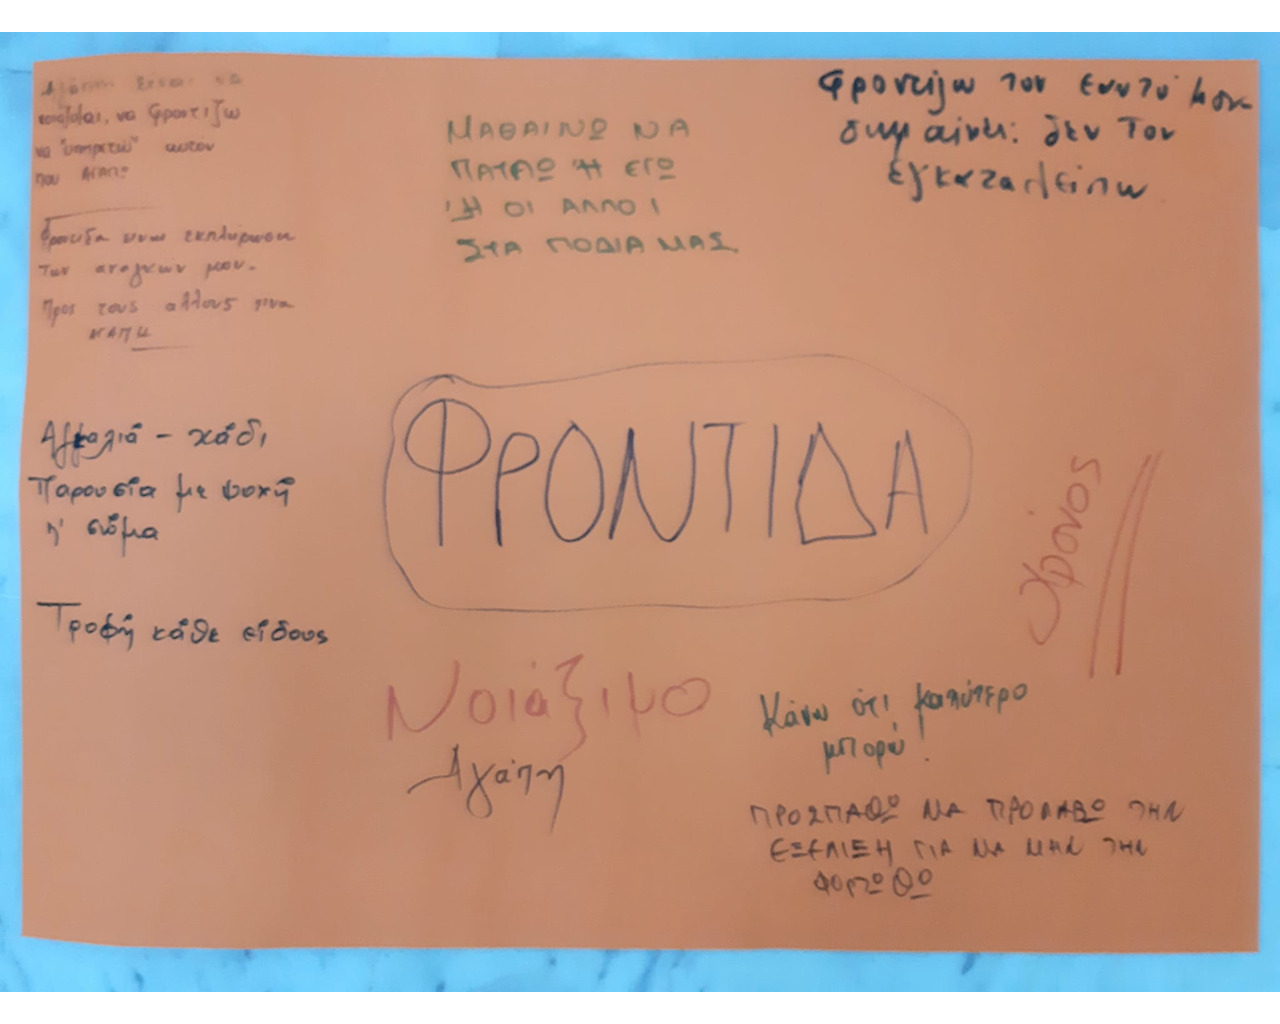 Αγάπη είναι να
νοιάζομαι, να φροντίζω
να "υπηρετώ" αυτον
που ΑΓΑΠΩ
Φροντίδα εκπλήρωση
των αναγκών μου.
Προς τους αλλους
ΜΑΘΑΙΝΩ ΝΑ
ΠΑΤΑΩ Ή ΕΓΩ
Ή ΟΙ ΑΛΛΟΙ
ΣΤΑ ΠΟΔΙΑ ΜΑΣ
Φροντίζω τον εαυτό μου
σημαίνει: δεν τον
εγκαταλείπω
Αγκαλιά - χάδι
Παρουσία με ψυχή
ή σώμα
Τροφή κάθε είδους
ΦΡΟΝΤΙΔΑ
Χρόνος
Νοιάξιμο
Αγάπη
Κάνω ότι καλύτερο
μπορώ!
ΠΡΟΣΠΑΘΩ ΝΑ ΠΡΟΛΑΒΩ ΤΗΝ
ΕΞΕΛΙΞΗ ΓΙΑ ΝΑ ΜΗΝ ΤΗΝ
ΦΟΡΤΩΘΩ